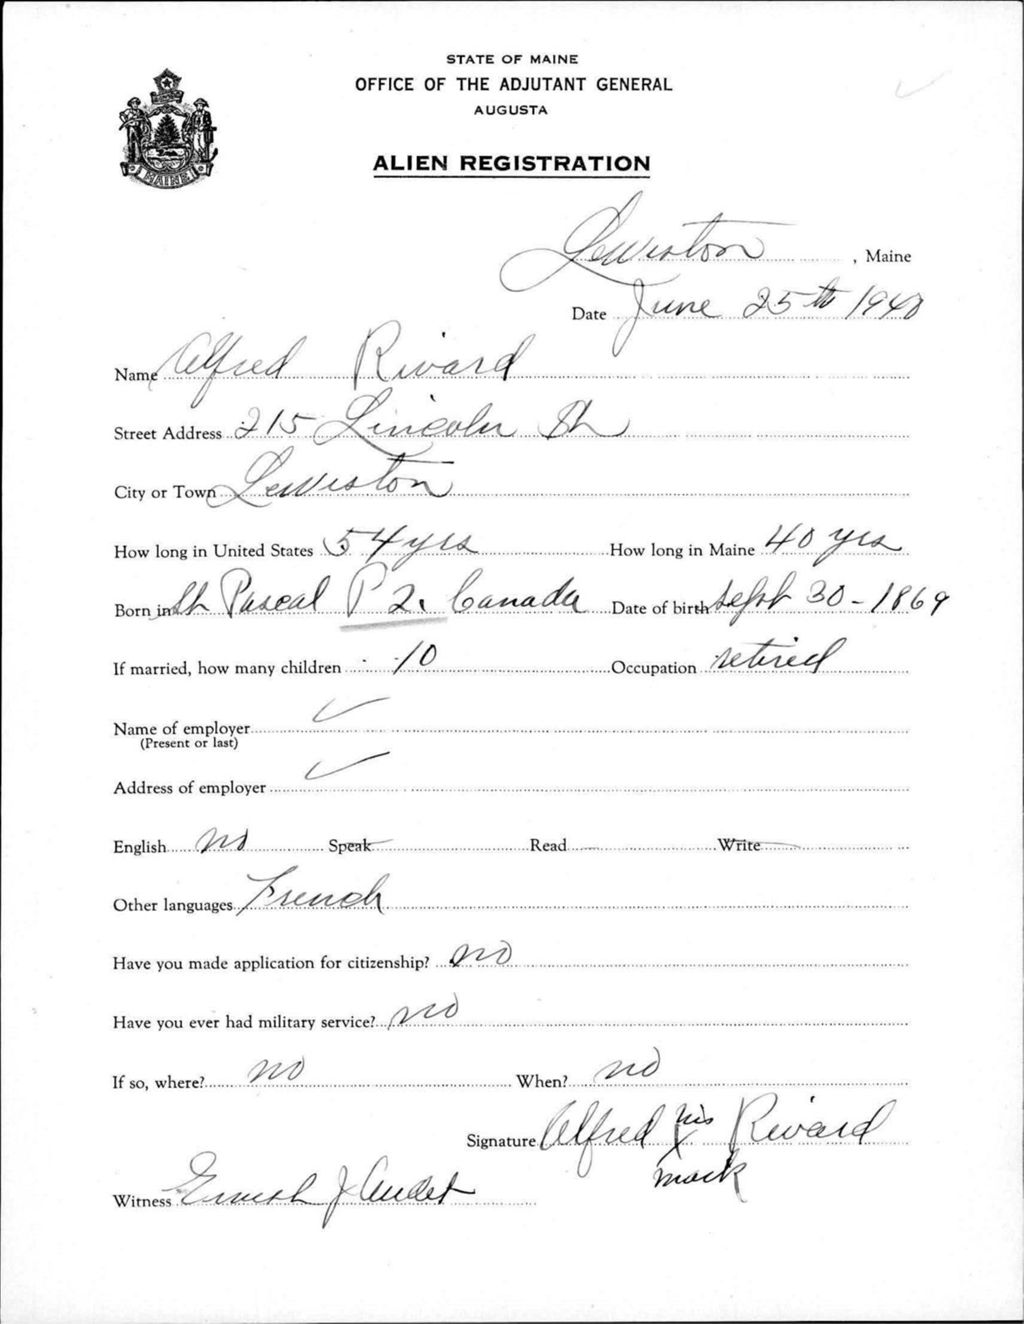 STATE OF MAINE
OFFICE OF THE ADJUTANT GENERAL
AUGUSTA
ALIEN REGISTRATION
MAINE
Lewiston, Maine
Date June 25th 1940
Name Alfred Rivard
Street Address 215 Lincoln St
City or Town Lewiston
How long in United States 54 yrs How long in Maine 40 yrs
Born in St Pascal P 2. Canada Date of birth Sept 30 - 1869
If married, how many children 10 Occupation retired
Name of employer
(Present or last)
Address of employer
English no Speak Read Write
Other languages French
Have you made application for citizenship? no
Have you ever had military service? no
If so, where? no When? no
Signature Alfred his X Rivard
mark
Witness Ernest J Audet